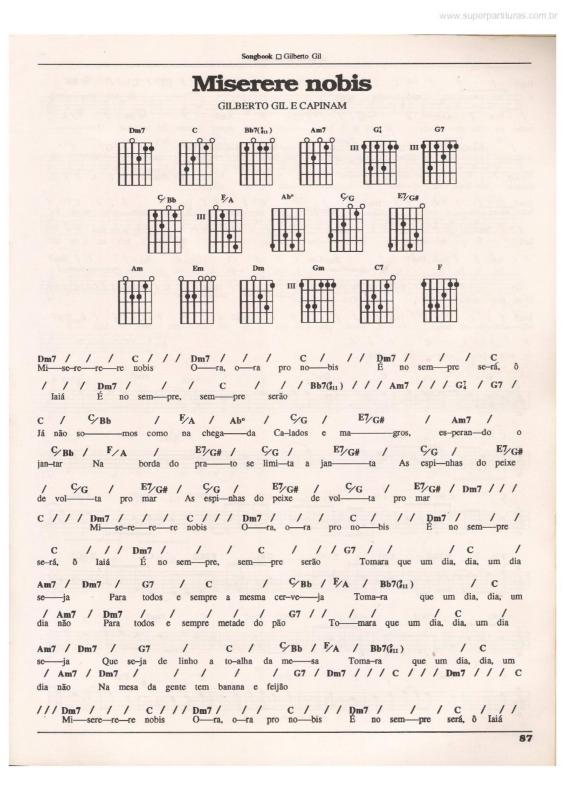 www.superpartituras.com.br
Songbook □ Gilberto Gil
Miserere nobis
GILBERTO GIL E CAPINAM
Dm7 C Bb7(9/#11) Am7 G7/4 G7
III III
C/Bb F/A Ab° C/G E7/G#
III
Am Em Dm Gm C7 F
III
Dm7 / / / C / / / Dm7 / / / C / / / Dm7 / / / C
Mi—se-re—re—re nobis O—ra, o—ra pro no—bis É no sem—pre se-rá, ô
/ / / Dm7 / / / C / / / Bb7(9/#11) / / / Am7 / / / G7/4 / G7 /
Iaiá É no sem—pre, sem—pre serão
C / C/Bb / F/A / Ab° / C/G / E7/G# / Am7 /
Já não so——mos como na chega——da Ca-lados e ma——gros, es-peran—do o
C/Bb / F/A / E7/G# / C/G / E7/G# / C/G / E7/G#
jan-tar Na borda do pra——to se limi—ta a jan——ta As espi—nhas do peixe
/ C/G / E7/G# / C/G / E7/G# / C/G / E7/G# / Dm7 / / /
de vol——ta pro mar As espi—nhas do peixe de vol——ta pro mar
C / / / Dm7 / / / C / / / Dm7 / / / C / / / Dm7 / / /
Mi—se-re—re—re nobis O—ra, o—ra pro no—bis É no sem—pre
C / / / Dm7 / / / C / / / G7 / / / C /
se-rá, ô Iaiá É no sem—pre, sem—pre serão Tomara que um dia, dia, um dia
Am7 / Dm7 / G7 / C / C/Bb / F/A / Bb7(9/#11) / C
se—ja Para todos e sempre a mesma cer-ve—ja Toma-ra que um dia, dia, um
/ Am7 / Dm7 / / / / / G7 / / / / / C /
dia não Para todos e sempre metade do pão To—mara que um dia, dia, um dia
Am7 / Dm7 / G7 / C / C/Bb / F/A / Bb7(9/#11) / C
se—ja Que se-ja de linho a to-alha da me—sa Toma-ra que um dia, dia, um
/ Am7 / Dm7 / / / / / G7 / Dm7 / / / C / / / Dm7 / / / C
dia não Na mesa da gente tem banana e feijão
/ / / Dm7 / / / C / / / Dm7 / / / C / / / Dm7 / / / C / / /
Mi—sere-re—re nobis O—ra, o—ra pro no—bis É no sem—pre será, ô Iaiá
87